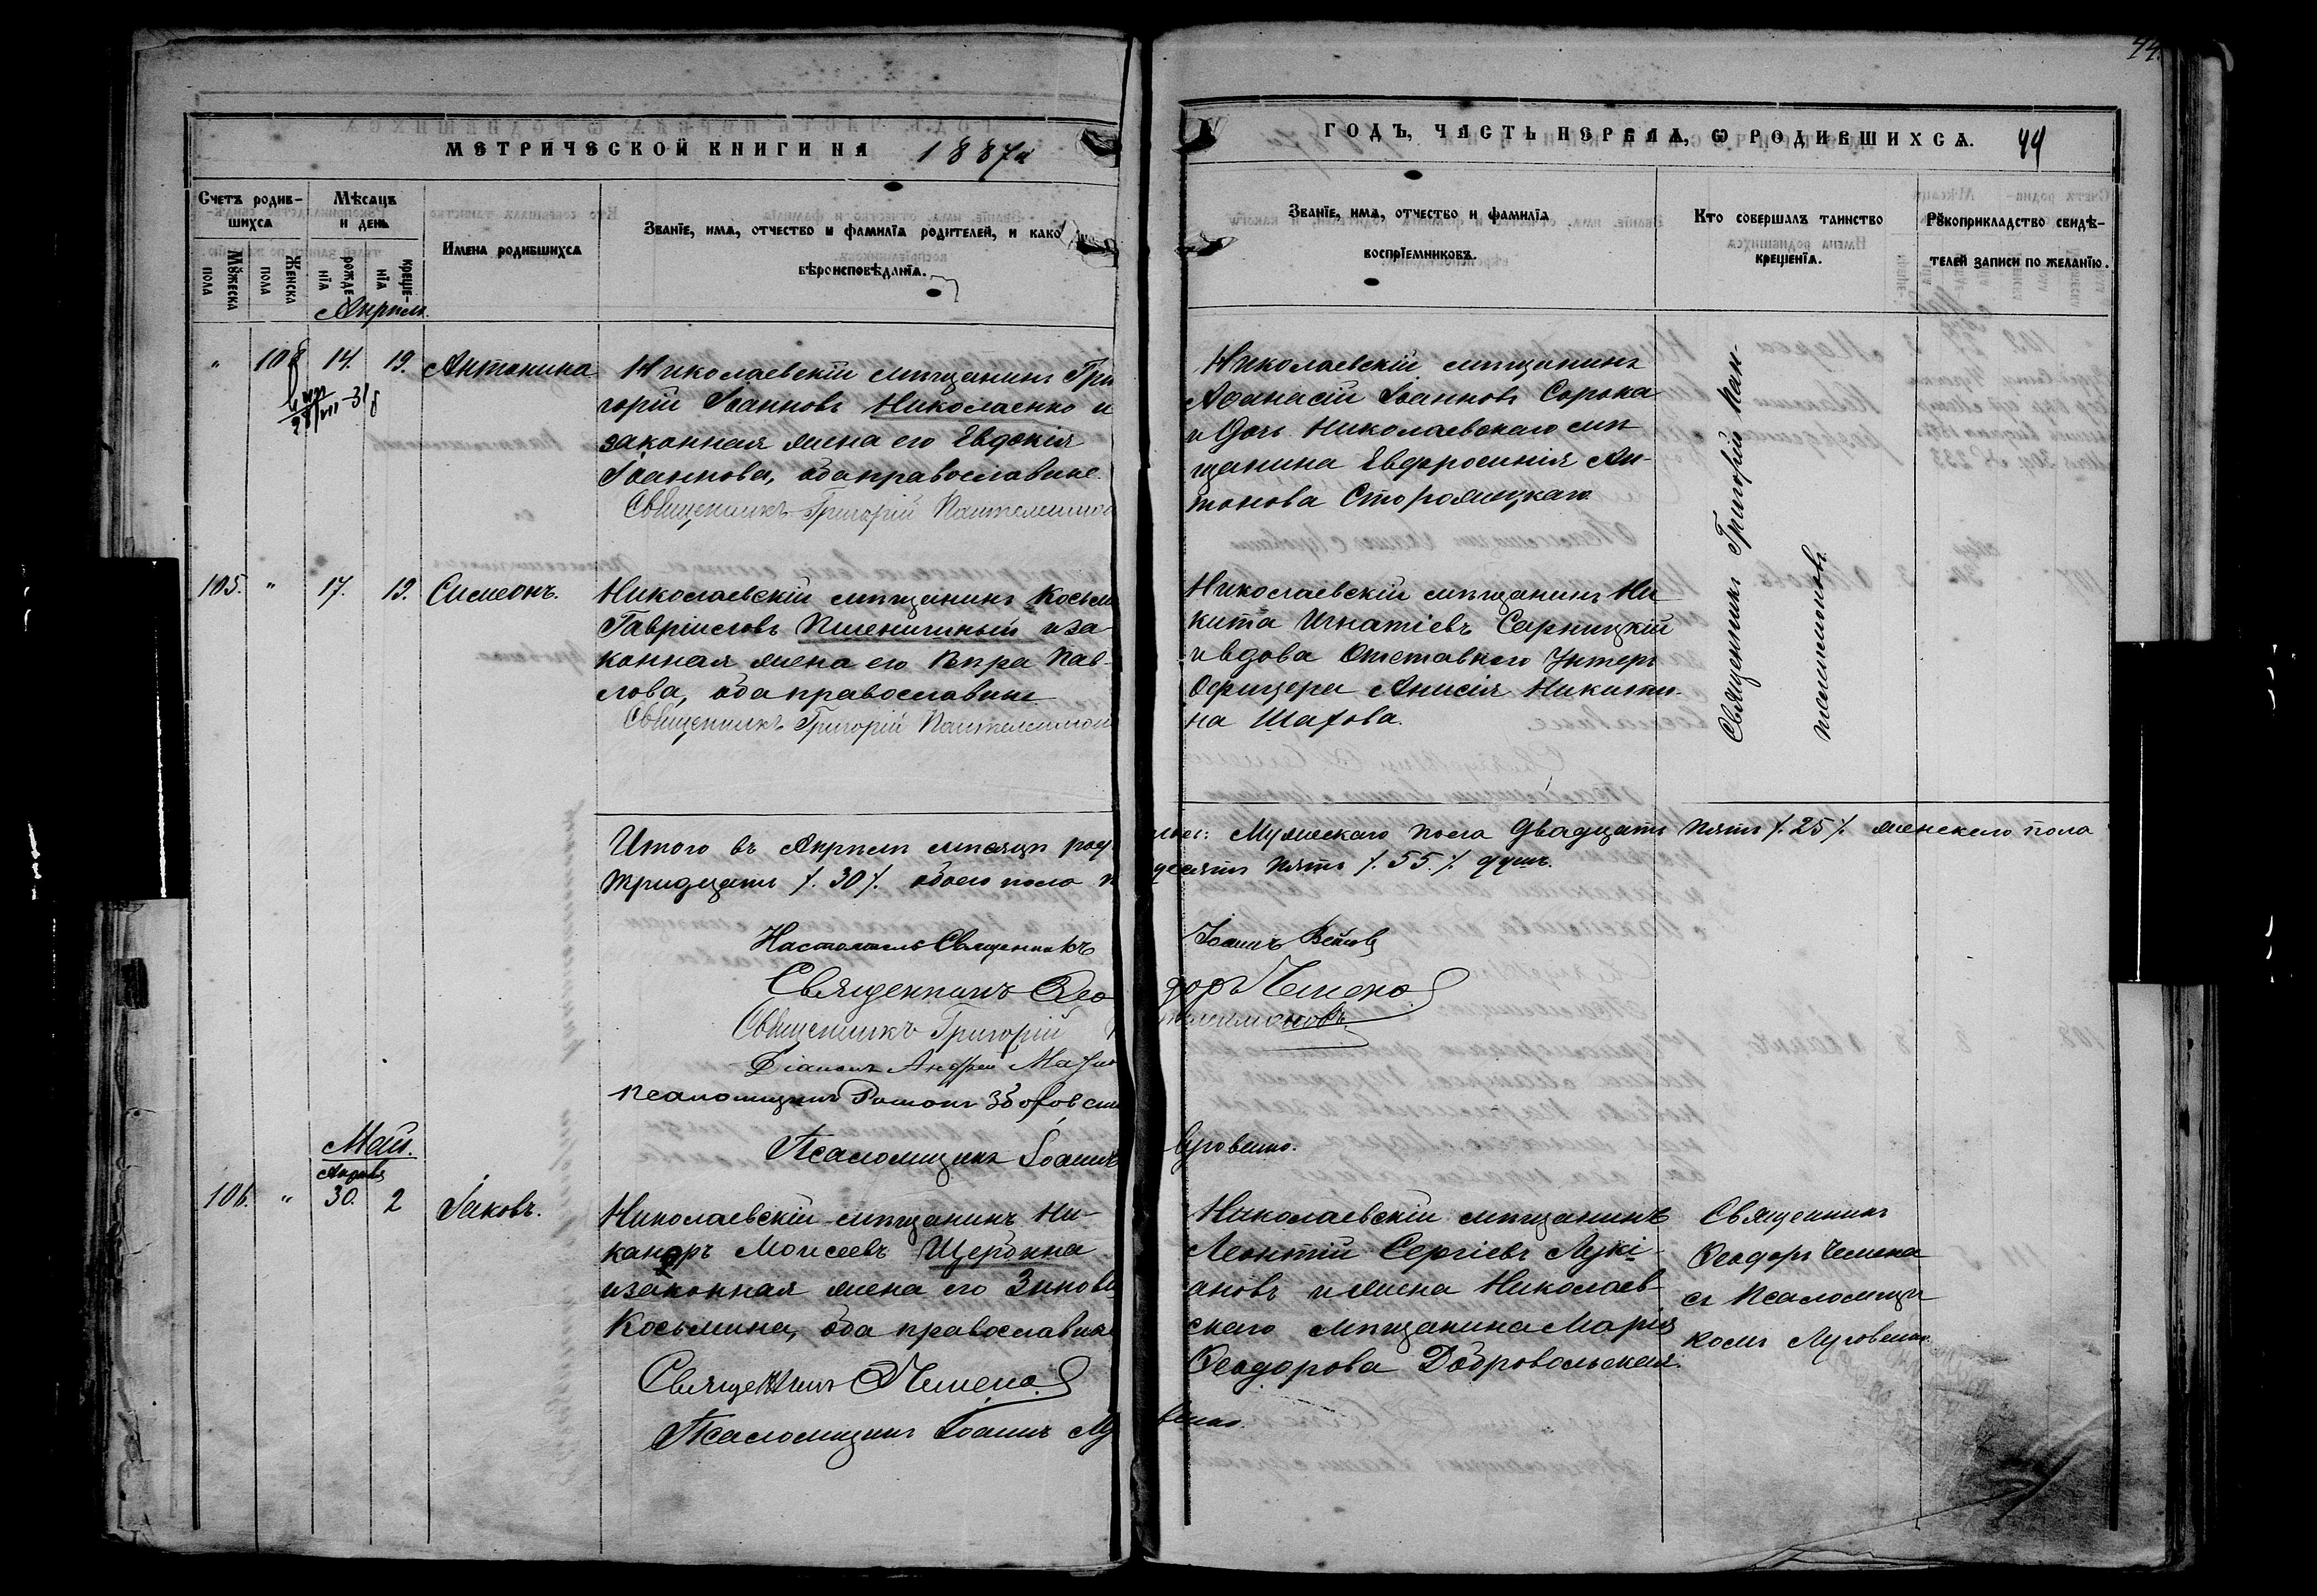 44.
МЕТРИЧЕСКОЙ КНИГИ НА 1887й
ГОДЪ, ЧАСТЬ ПЕРВАЯ, Ѡ РОДИВШИХСЯ. 44
Счетъ родив-
шихся
Мѣсяцъ
и день
Имена родившихся
Званїе, имя, отчество и фамилїя родителей, и како
вѣроисповѣданїя.
Мꙋжеска пола
Женска пола
рожденїя
крещенїя
Званїе, имя, отчество и фамилїя
воспрїемниковъ.
Кто совершалъ таинство
крещенїя.
Рꙋкоприкладство свидѣ-
телей записи по желанїю.
Апрѣль
" 108 14. 19. Антонина
Николаевскій мѣщанинъ Гри
горій Іоанновъ Николаенко и
законная жена его Евдокія
Іоаннова, оба православные.
Священникъ Григорій Пантелеимон
Николаевскій мѣщанинъ
Аѳанасій Іоанновъ Сорока
и дочь Николаевскаго мѣ
щанина Евфросинія Ан-
тонова Сторожецкаго
Священникъ Григорій Пан-
телеимоновъ
105. " 17. 19. Симеонъ.
Николаевскій мѣщанинъ Косьм
Гавріиловъ Пшеничный и за-
конная жена его Вѣра Пав-
лова, оба православные
Священникъ Григорій Пантелеимон
Николаевскій мѣщанинъ Ни
кита Игнатіевъ Сарницкій
и вдова Отставнаго Унтеръ
Офицера Анисія Никити-
на Шахова.
Итого въ Апрѣлѣ мѣсяцѣ род лось: Мужескаго пола двадцать пять /.25/. женскаго пола
тридцать /.30/. обоего пола п десятъ пять /.55./. душъ.
Настоятель Священникъ Іоаннъ
Священникъ Ѳео доръ Чемена
Священникъ Григорій телеимоновъ
Діаконъ Андрей
Псаломщикъ Романъ Зборовски
Псаломщикъ Іоаннъ Луговенко.
Май.
Апрѣля
106. " 30. 2 Іаковъ.
Николаевскій мѣщанинъ Ни-
каноръ Моисеевъ Щербина
и законная жена его Зинові
Косьмина, оба православны
Священникъ Ѳ Чемена
Псаломщикъ Іоаннъ Лу венко.
Николаевскій мѣщанинъ
Леонтій Сергіевъ Лукі-
ановъ и жена Николаев-
скаго мѣщанина Марія
Ѳеодорова Добровольская.
Священникъ
Ѳеодоръ Чемена
съ Псаломщи
комъ Луговенко.